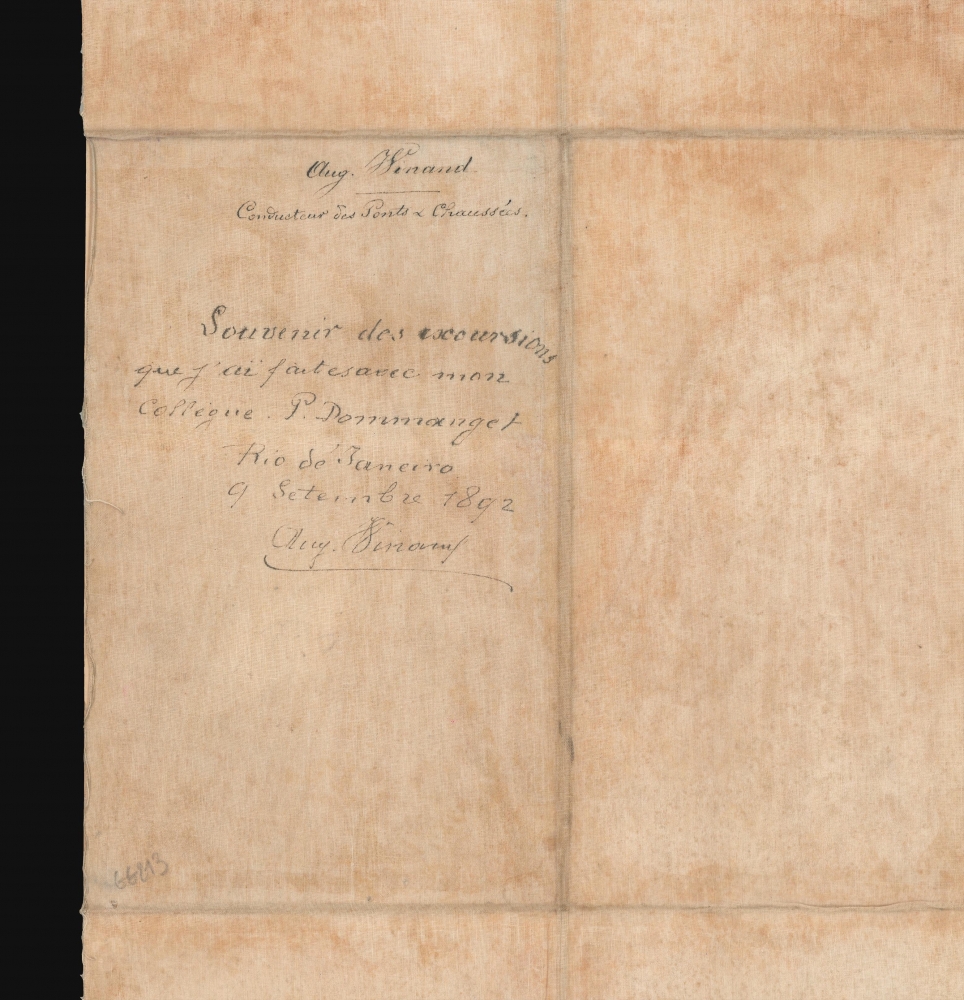 Aug. Winand
Conducteur des Ponts & Chaussées.
Souvenir des excursions
que j'ai faites avec mon
Collègue. P. Dommanget
Rio de Janeiro
9 Setembre 1892
Aug. Winand
66213